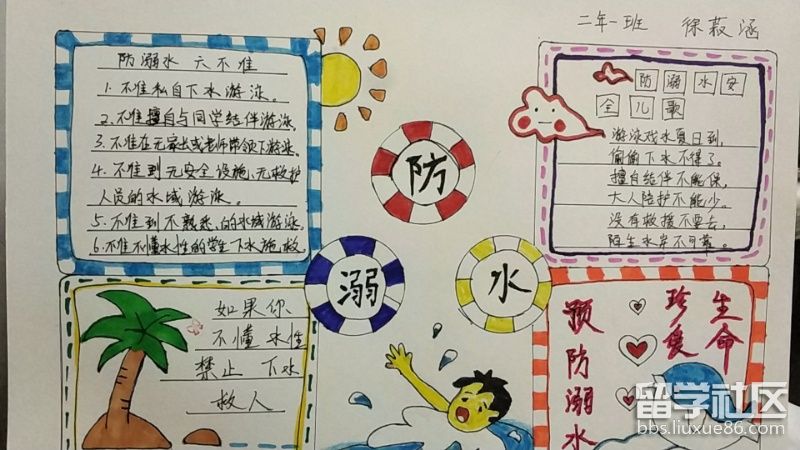 二年一班 徐菽涵
防溺水 六不准
1.不准私自下水游泳。
2.不准擅自与同学结伴游泳。
3.不准在无家长或老师带领下游泳。
4.不准到无安全设施、无救护
人员的水域游泳。
5.不准到不熟悉的水域游泳。
6.不准不懂水性的学生下水施救
防
溺
水
防溺水安
全儿歌
游泳戏水夏日到,
偷偷下水不得了。
擅自结伴不能保,
大人陪护不能少。
没有救援不要去,
陌生水岸不可靠。
如果你
不懂水性
禁止下水
救人
预防溺水
珍爱
生命
留学社区
bbs.liuxue86.com